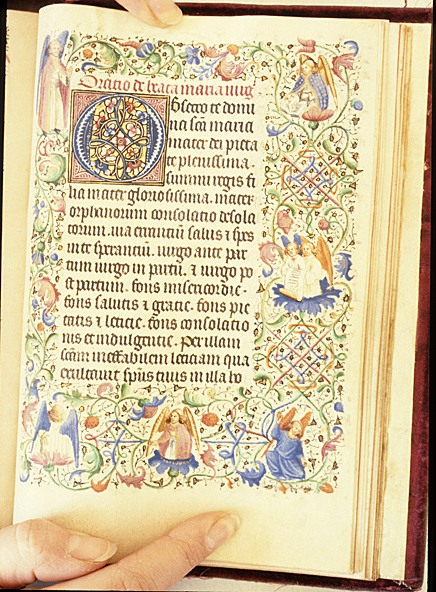 Oratio de beata maria virg̃
Obsecro te domi
na scã maria
mater dei pieta
te plenissima.
summi regis fi
lia mater gloriosissima. mater
orphanorum consolatio desola
torum. uia errantiũ salus ⁊ spes
in te sperantiũ. uirgo ante par
tum uirgo in partu. ⁊ uirgo po
st partum. fons misericordie.
fons salutis ⁊ gratie. fons pie
tatis ⁊ leticie. fons consolatio
nis et indulgentie. Per illam
scãm ineffabilem leticiam qua
exultauit spũs tuus in illa ho